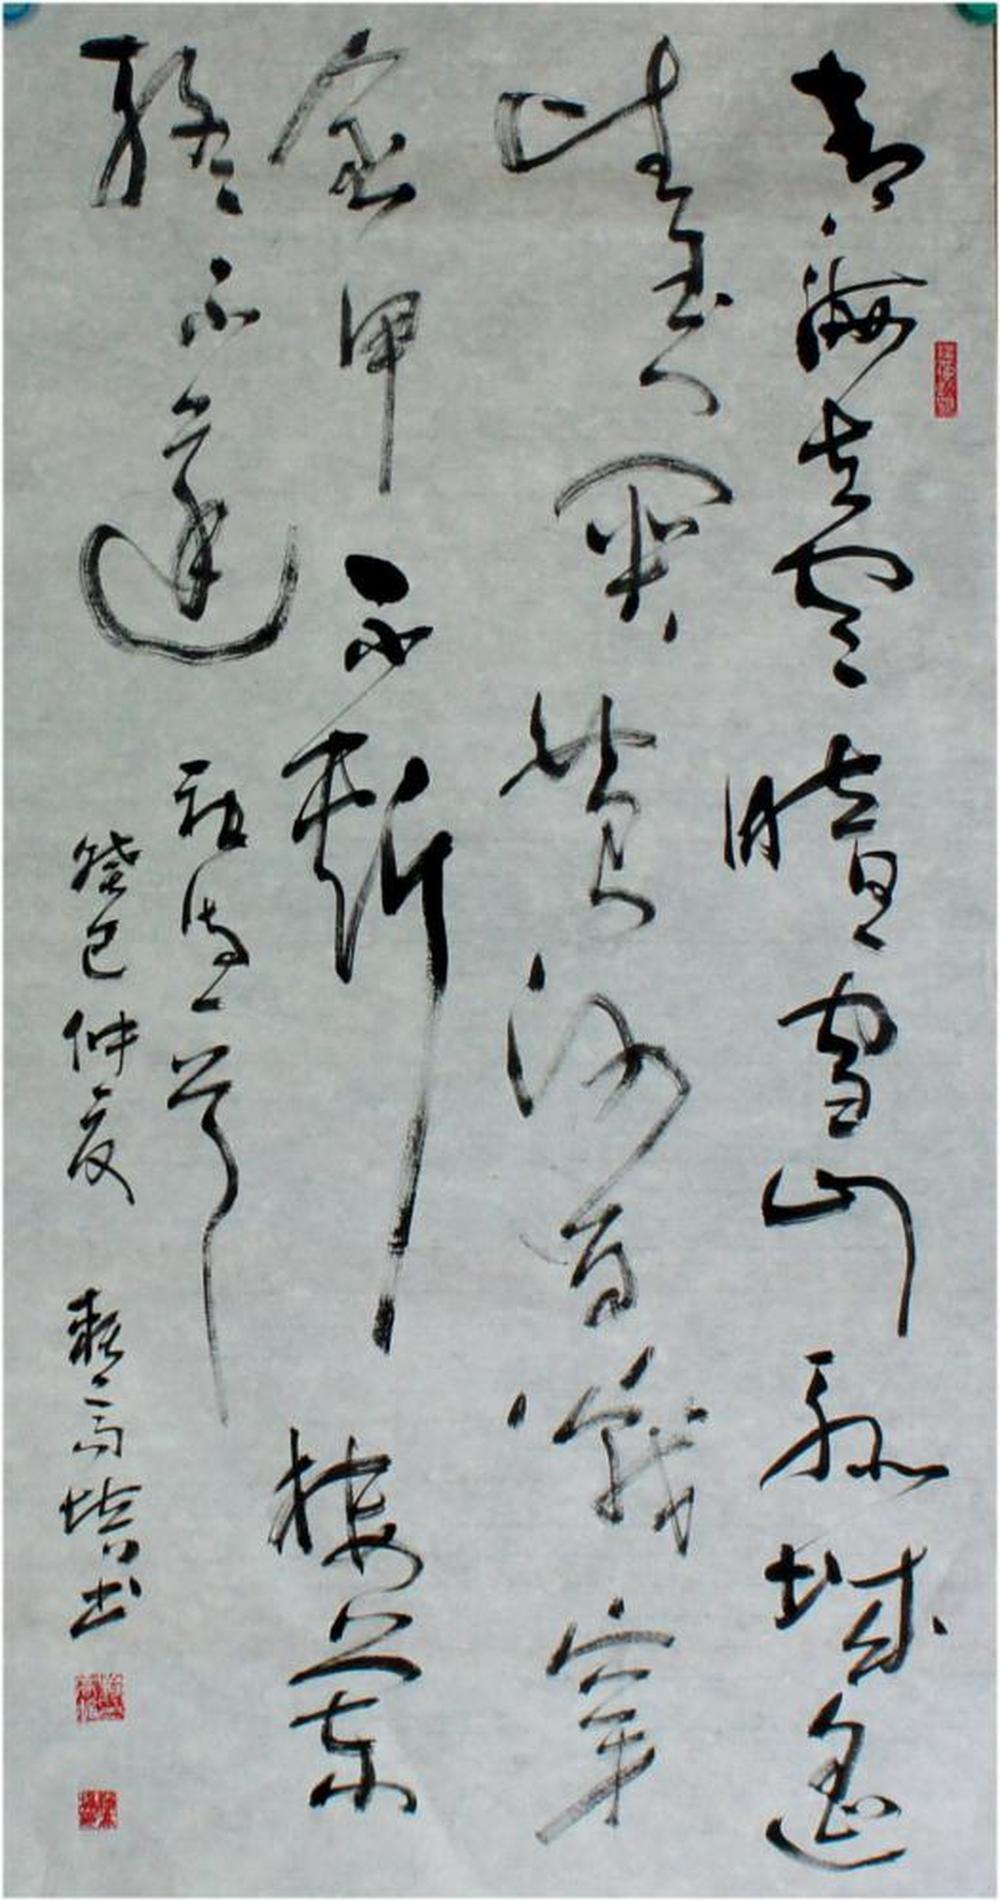 青海長雲暗雪山孤城遙
望玉門關黃沙百戰穿
金甲不斬樓蘭
終不還 詩一首
癸巳仲夏 高培书